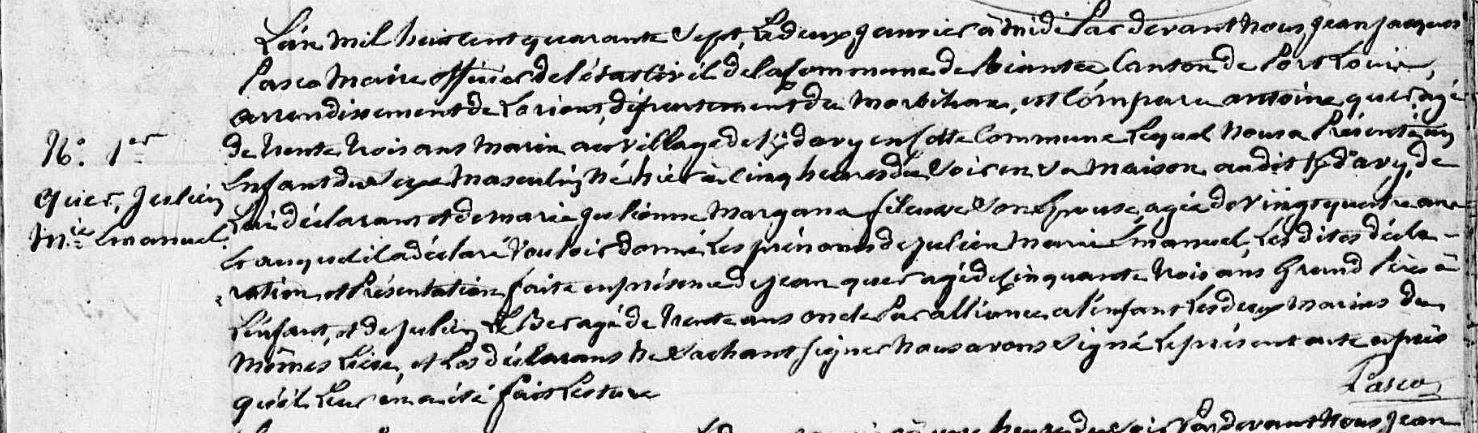 L'an mil huit cent quarante sept, le deux janvier à midi Par devant Nous jean jacques
Pasco Maire officier de l'état Civil de la Commune de Riantec Canton de Port Louis,
arrondissement de Lorient, département du Morbihan, est Comparu antoine quer, agé
de trente trois ans marin au village de Kdavy en cette Commune Lequel Nous a Présenté un
N° 1er
Enfant du Sexe Masculin Né hier à cinq heures du Soir en Sa Maison audit Kdavy, de
Quer, Julien
Lui déclarant et de marie julienne Margana fileuse Son épouse, agée de vingt quatre ans
Mie Emanuel
Et auquel il a déclaré Vouloir donné Les prénoms de julien Marie Emanuel, Les dites décla-
ration et Présentation faite en présence de jean quer agé de cinquante trois ans Grand Père à
L'enfant, et de julien Le Bec agé de trente ans oncle Par alliance a l'enfant Les deux Marins du
Mêmes Lieu, et Les déclarans Ne Sachant signer Nous avons Signé Le présent acte après
qu'il Leur en a été fait Lecture
Pasco
Par devant Nous jean